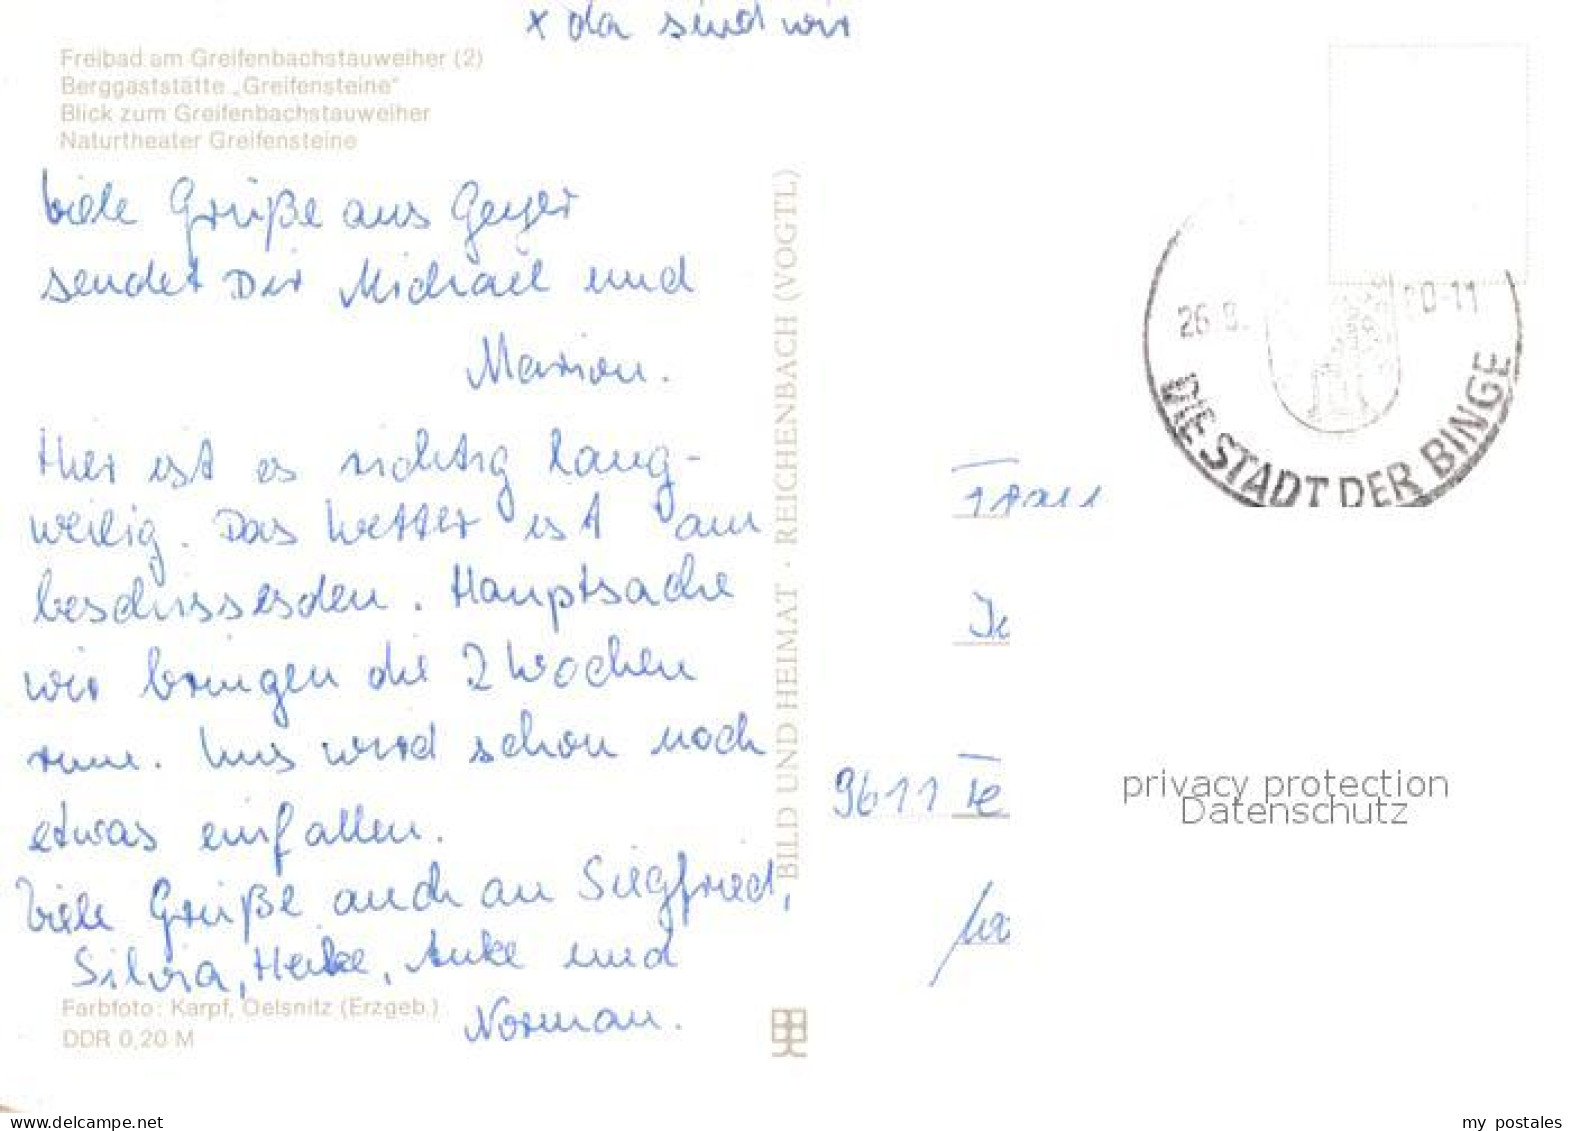 x da sind wir
Freibad am Greifenbachstauweiher (2)
Berggaststätte „Greifensteine“
Blick zum Greifenbachstauweiher
Naturtheater Greifensteine
Viele Grüße aus Geyer
sendet Dir Michael und
Marion.
Hier ist es richtig lang-
weilig. Das Wetter ist am
beschissesden. Hauptsache
wir bringen die 2 Wochen
rum. Uns wird schon noch
etwas einfallen.
Viele Grüße auch an Siegfried,
Silvia, Heike, Anke und
Norman.
Farbfoto: Karpf, Oelsnitz (Erzgeb.)
DDR 0,20 M
BILD UND HEIMAT · REICHENBACH (VOGTL)
26.8.
0-11
DIE STADT DER BINGE
9611
privacy protection
Datenschutz
www.delcampe.net
my_postales